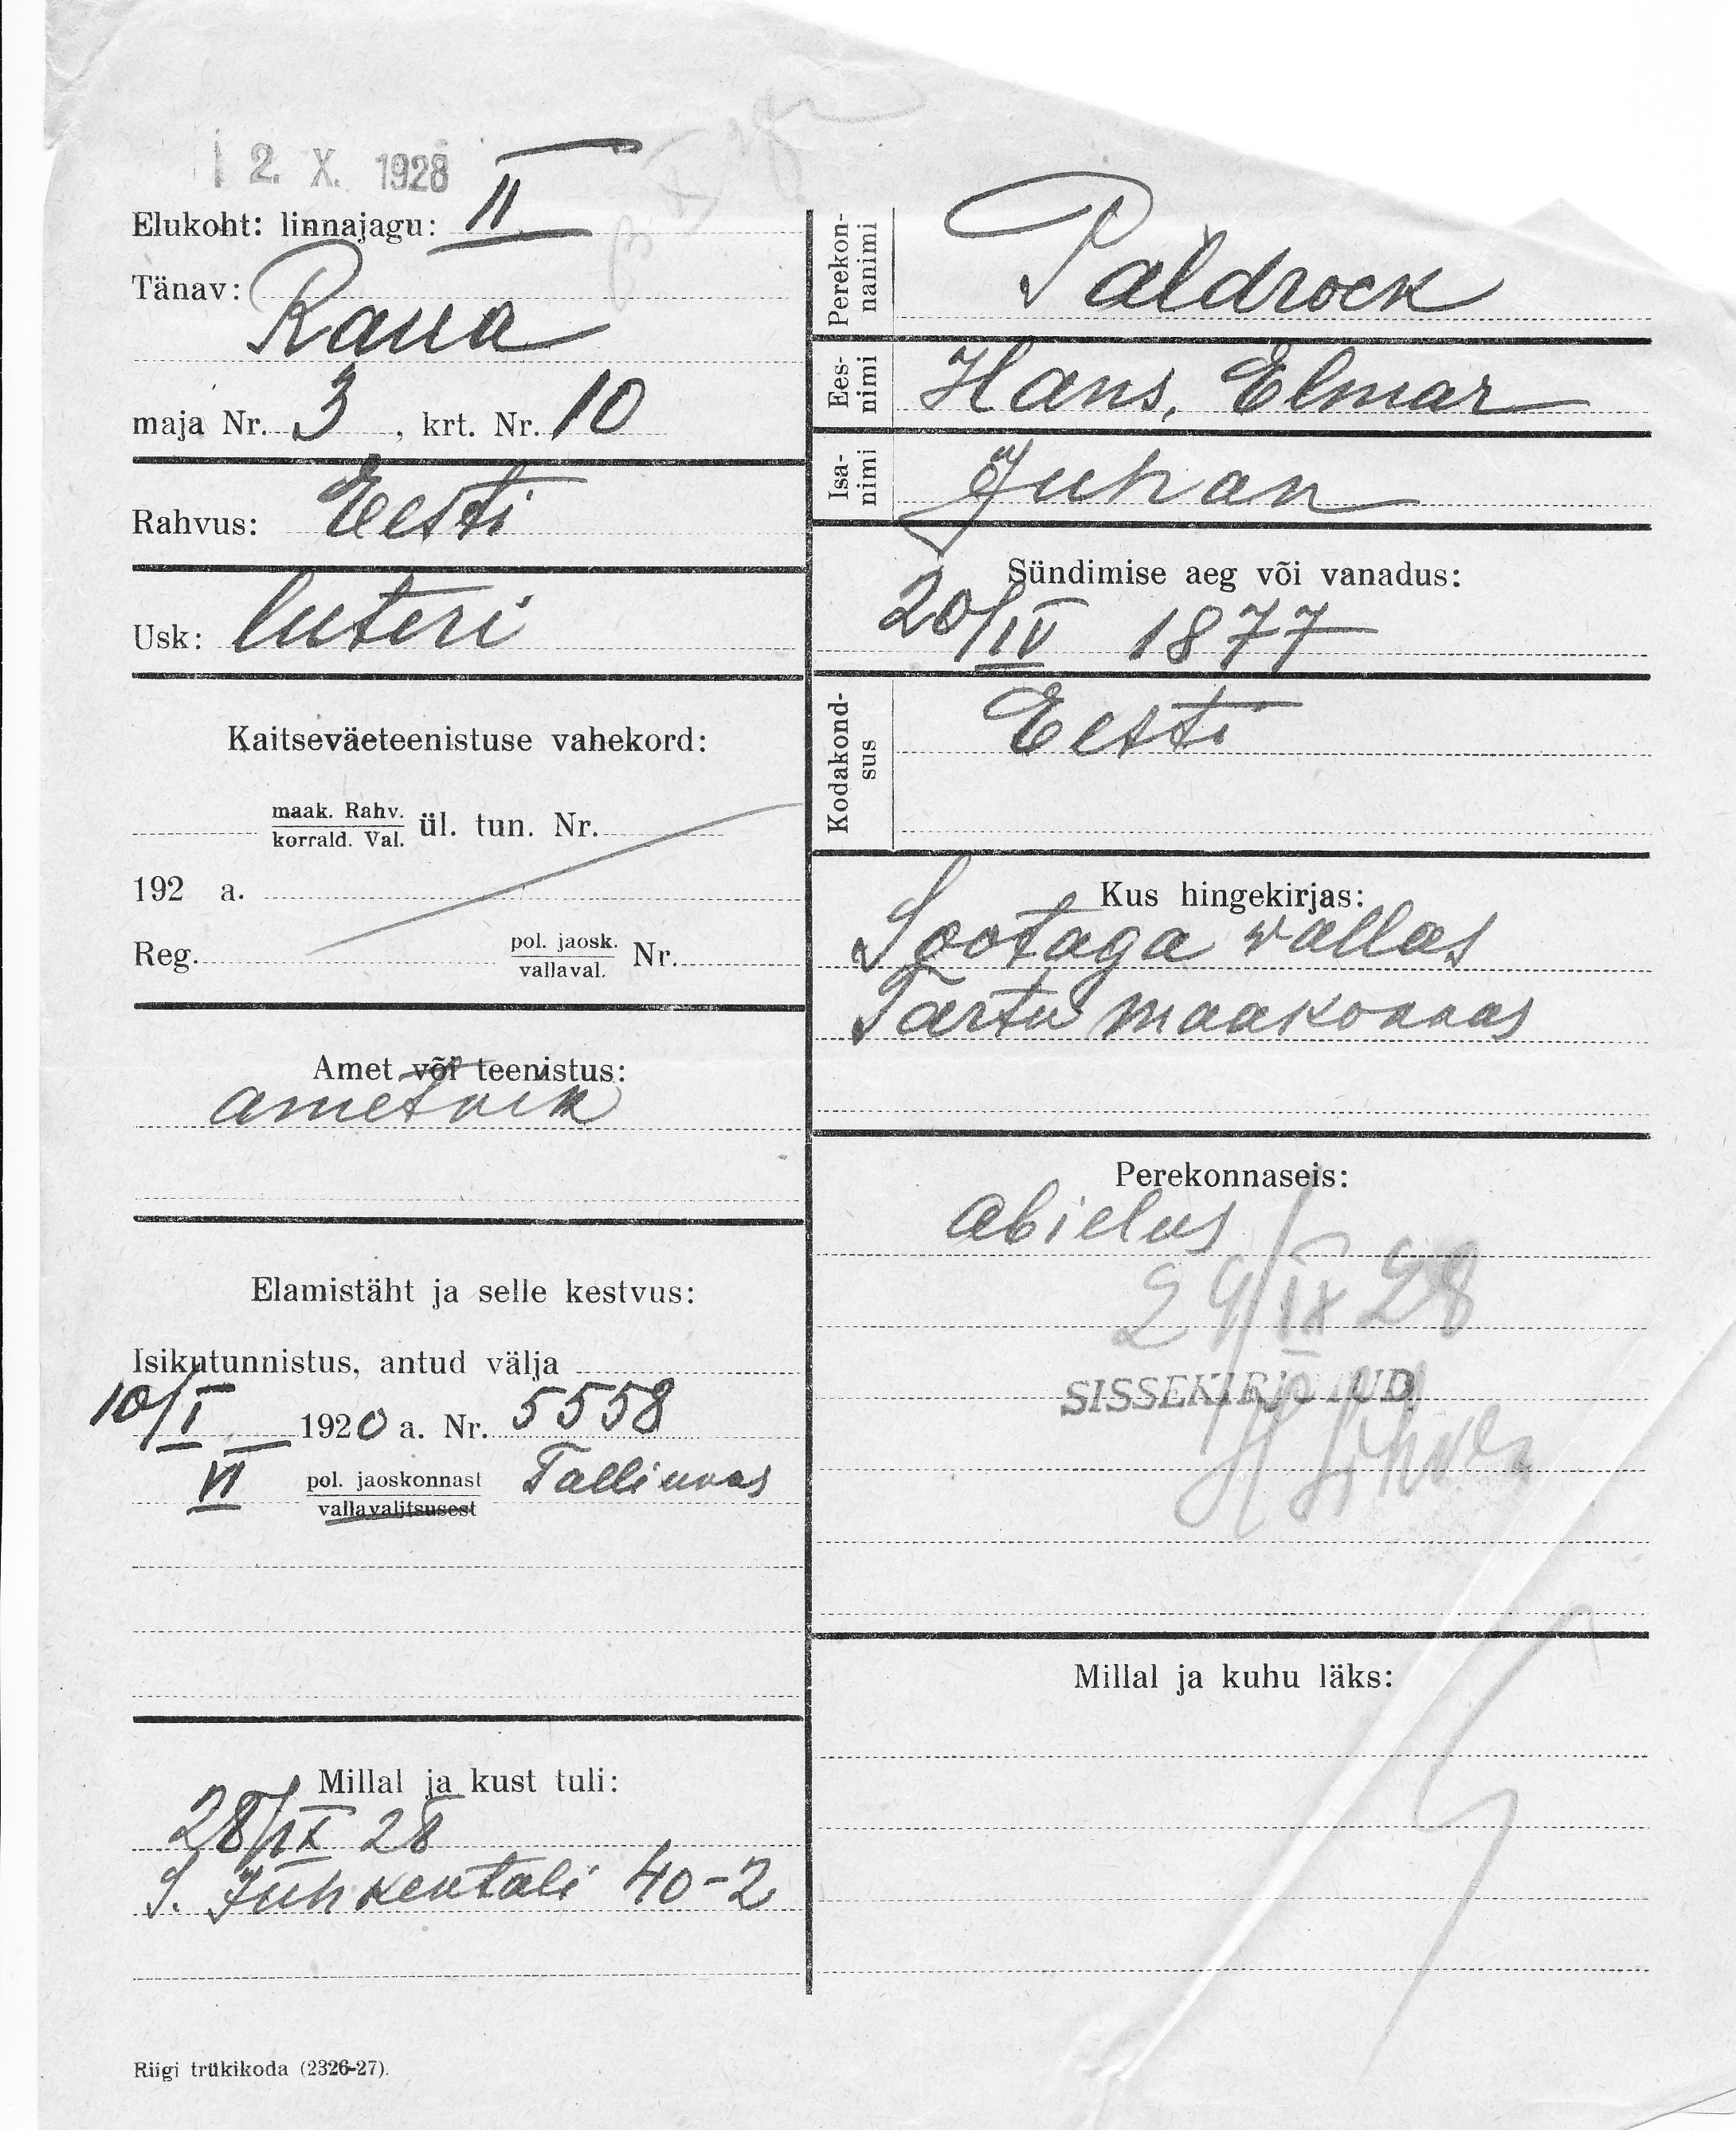 2. X. 1928
Elukoht: linnajagu: II
Tänav:
Raua
maja Nr. 3, krt. Nr. 10
Rahvus: Eesti
Usk: luteri
Kaitseväeteenistuse vahekord:
maak. Rahv.
korrald. Val. ül. tun. Nr.
192 a.
Reg. pol. jaosk.
vallaval. Nr.
Amet või teenistus:
ametnik
Elamistäht ja selle kestvus:
Isikutunnistus, antud välja
10/I 1920 a. Nr. 5558
VI pol. jaoskonnast Tallinnas
vallavalitsusest
Millal ja kust tuli:
28/IX 28
S. Juhkentali 40-2
Riigi trükikoda (2326-27).
Perekon-
nanimi
Paldrock
Ees-
nimi
Hans, Elmar
Isa-
nimi
Juhan
Sündimise aeg või vanadus:
20/IV 1877
Kodakond-
sus
Eesti
Kus hingekirjas:
Sootaga vallas
Tartu maakonnas
Perekonnaseis:
abielus
29/IX 28
SISSEKIRJUTUD
Millal ja kuhu läks: